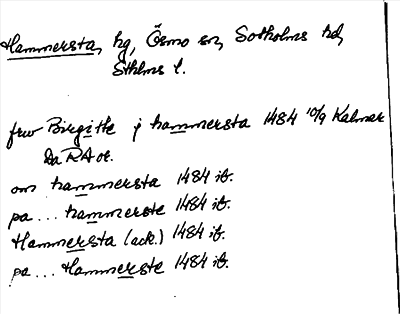 Hammersta, hg, Ösmo sn, Sotholms hd,
Sthlms l.
frw Birgitte j hammersta 1484 10/9 Kalmar
Da RA or.
om hammersta 1484 ib.
pa ... hammerste 1484 ib.
Hammersta (ack.) 1484 ib.
pa ... Hammerste 1484 ib.